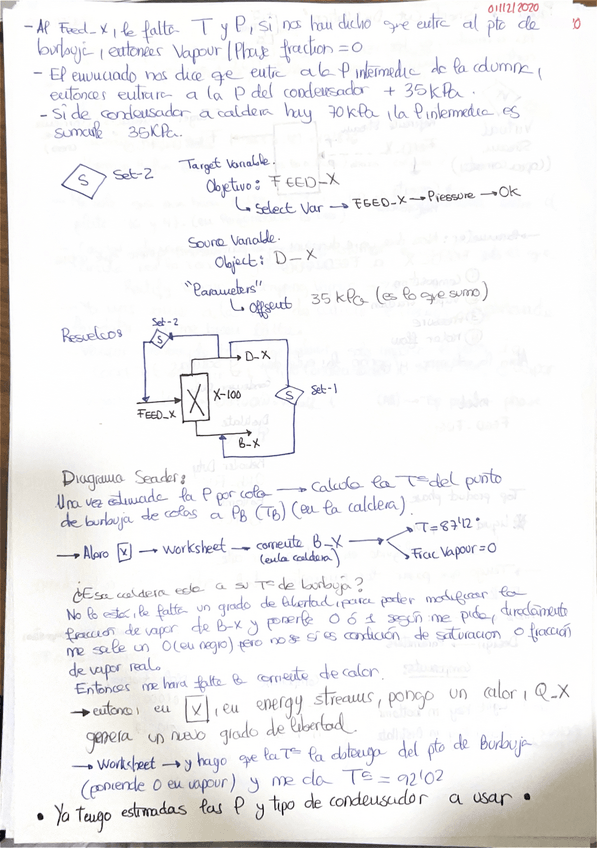 01/12/2020
- Al Feed_X, le falta T y P, si nos han dicho que entra al pto de
burbuja, entonces Vapour/Phase fraction = 0
- El enunciado nos dice qe entra a la P intermedia de la columna,
entonces entrara a la P del condensador + 35 kPa.
- Si de condensador a caldera hay 70 kPa, la P intermedia es
sumarle 35 KPa.
S
Set-2
Target Variable.
Objetivo: FEED_X
↳ Select Var → FEED_X → Pressure → Ok
Source Variable.
Object: D_X
"Parameters"
↳ offset 35 kPa (es lo qe sumo)
Resuelcos
Set-2
S
D_X
X
X-100
S
Set-1
FEED_X
B_X
Diagrama Seader:
Una vez estimada la P por cola → Calcula la Tª del punto
de burbuja de colas a PB (TB) (en la caldera).
→ Abro X → Worksheet → corriente B_X → T = 87'12°
(en la caldera) Frac Vapour = 0
¿Esa caldera esta a su Tª de burbuja?
No lo está, le falta un grado de libertad, para poder modificar la
fraccion de vapor de B-X y ponerle 0 ó 1 según me pida, directamente
me sale un 0 (en negro) pero no se si es condición de saturacion o fracción
de vapor real.
Entonces me hara falta la corriente de calor.
→ entonces, en X, en energy streams, pongo un calor, Q_X
genera un nuevo grado de libertad.
→ Worksheet → y hago que la Tª la obtenga del pto de Burbuja
(poniendo 0 en vapour) y me da Tª = 92'02
• Ya tengo estimadas las P y tipo de condensador a usar •